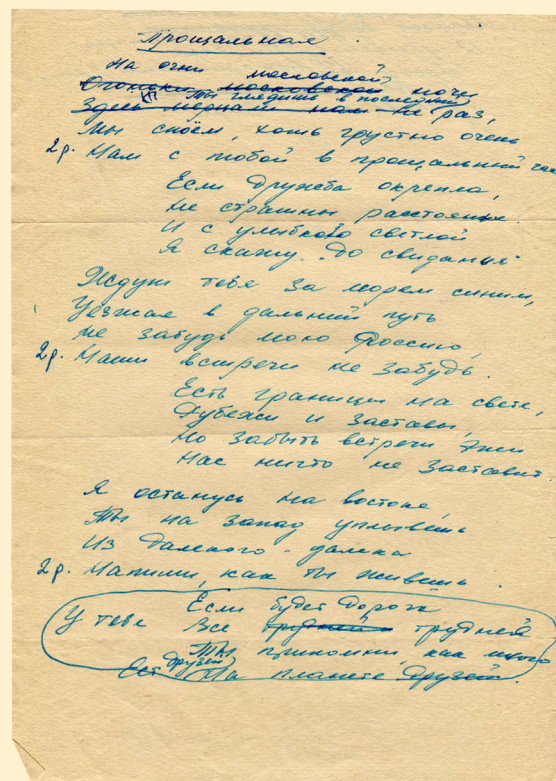 Прощальная
На огни московской
Огоньки московской ночи
Ты глядишь в последний
Здесь мерцали нам не раз,
Мы споём, хоть грустно очень
2 р. Нам с тобой в прощальный час
Если дружба окрепла,
Не страшны расстоянья
И с улыбкой светлой
Я скажу "До свиданья"
Ждут тебя за морем синим,
Уезжая в дальний путь
Не забудь мою Россию,
2 р. Наши встречи не забудь.
Есть границы на свете,
Рубежи и заставы,
Но забыть встречи эти
Нас ничто не заставит.
Я останусь на востоке,
Ты на запад уплывёшь
Из далёкого-далека
2 р. Напиши, как ты живёшь.
Если будет дорога
У тебя все трудней трудней
Ты припомни, как много
друзей
Ест На планете друзей.